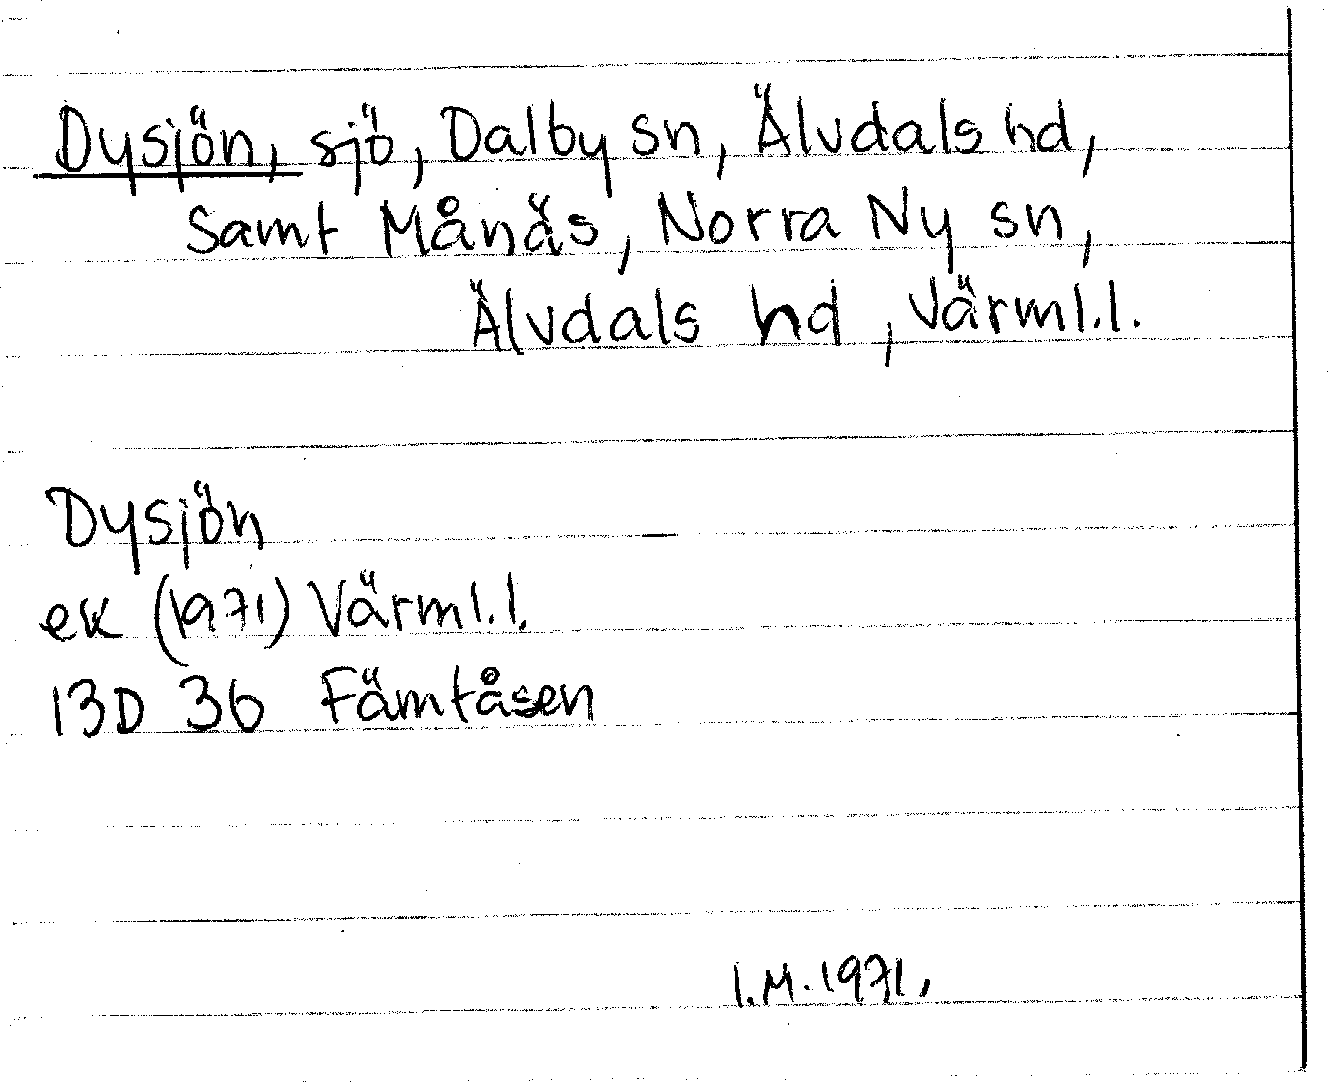 Dysjön, sjö, Dalby sn, Älvdals hd,
samt Månäs, Norra Ny sn,
Älvdals hd, Värml.l.
Dysjön
ek (1971) Värml.l.
13D 3b Fämtåsen
I.M.1971.